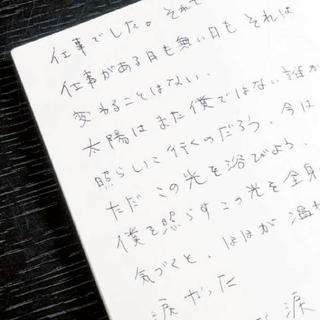 仕事でした。それで
仕事がある日も無い日も それは
変わることはない.
太陽はまた僕ではない誰か
照らしに行くのだろう. 今は
ただ この光を浴びよう.
僕を照らすこの光を全身
気づくと、ほほが 温か
涙だった
涙